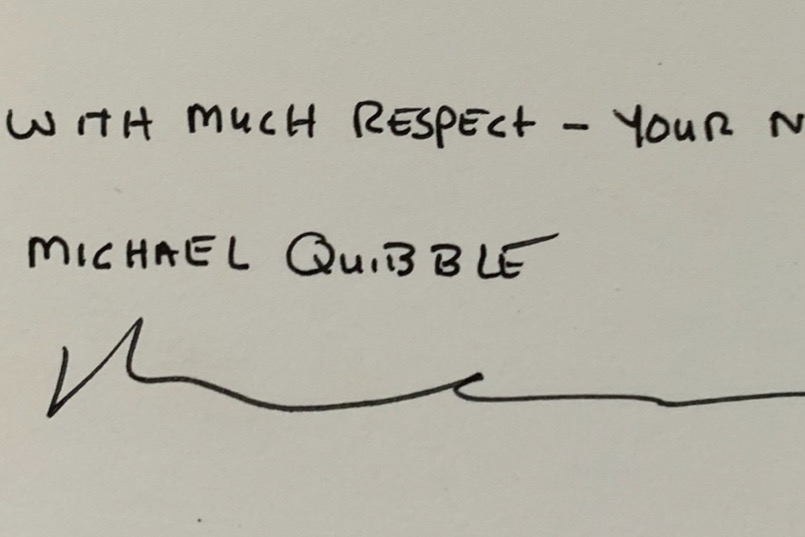 WITH MUCH RESPECT - YOUR N
MICHAEL QUIBBLE